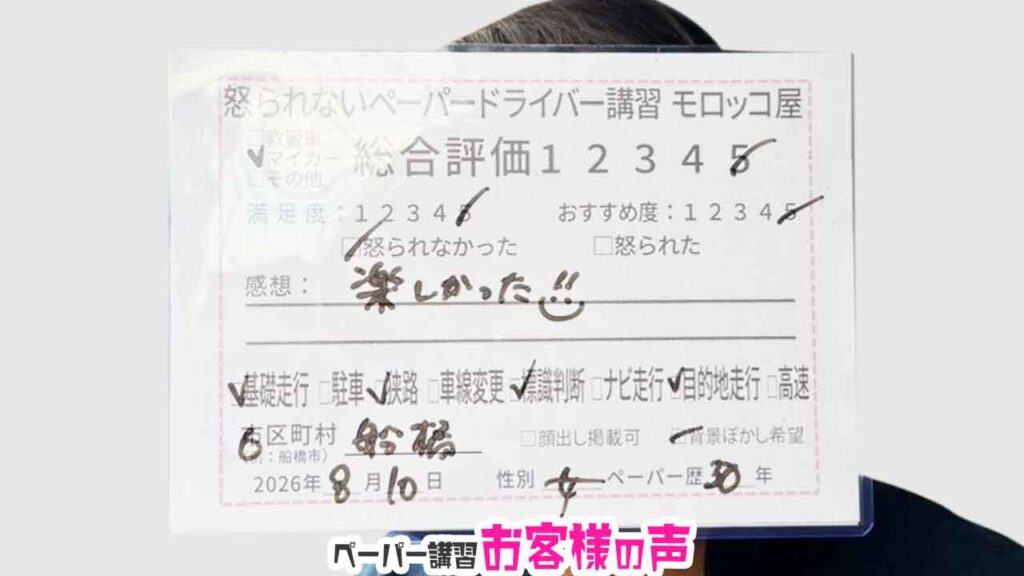 怒られないペーパードライバー講習 モロッコ屋
□教習車
✓マイカー
□その他
総合評価1 2 3 4 5
満足度：1 2 3 4 5
おすすめ度：1 2 3 4 5
□怒られなかった □怒られた
感想：楽しかった!!
□基礎走行 □駐車 □狭路 □車線変更 □標識判断 □ナビ走行 □目的地走行 □高速
市区町村 船橋
(例：船橋市)
□顔出し掲載可 □背景ぼかし希望
2026年 8月10日 性別 女 ペーパー歴 30年
ペーパー講習 お客様の声